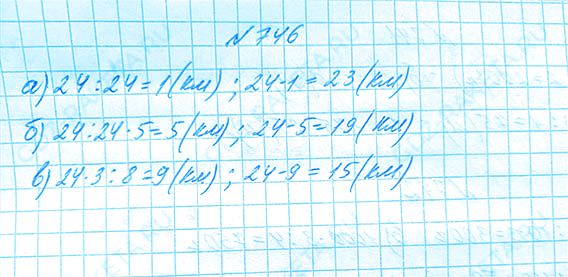 № 746
а) 24 : 24 = 1 (км) ; 24 - 1 = 23 (км)
б) 24 : 24 · 5 = 5 (км) ; 24 - 5 = 19 (км)
в) 24 · 3 : 8 = 9 (км) ; 24 - 9 = 15 (км)